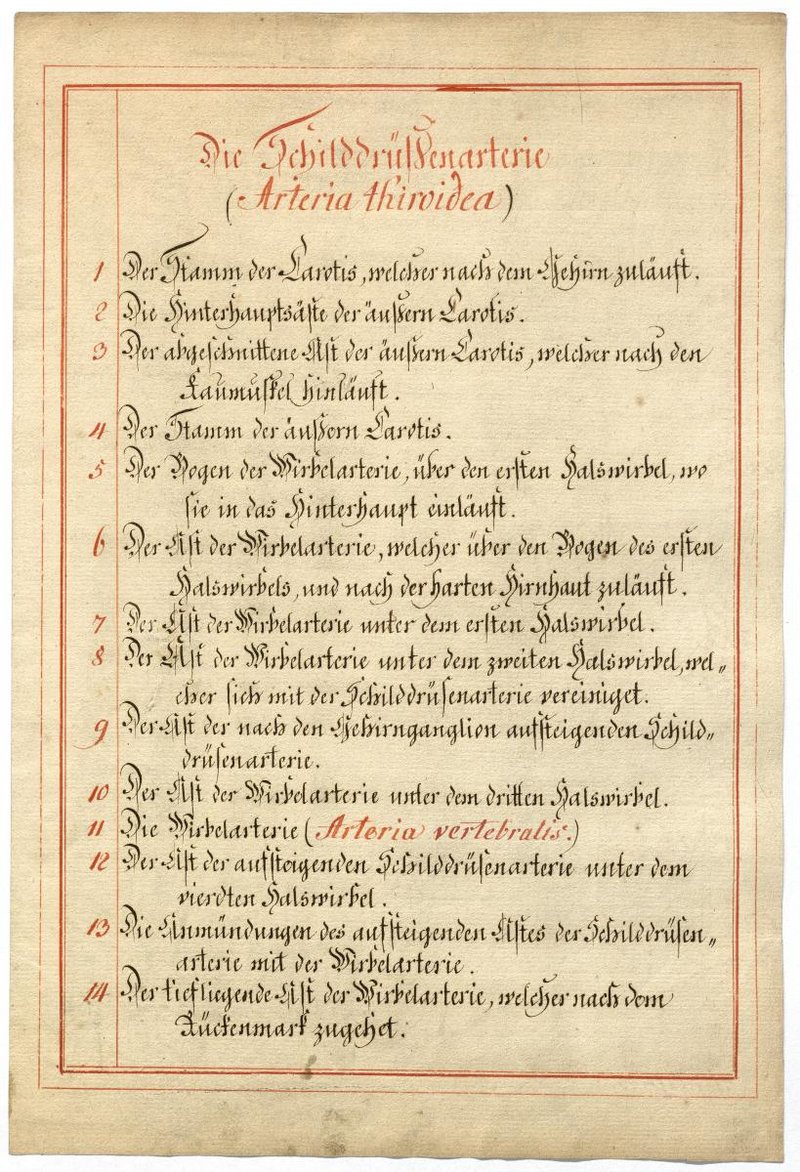 Die Schilddrüßenarterie
(Arteria thiroidea)
1 Der Stamm der Carotis, welcher nach dem Gehirn zuläuft.
2 Die Hinterhauptsäste der äußern Carotis.
3 Der abgeschnittene Ast der äußern Carotis, welcher nach den
Kaumuskel hinläuft.
4 Der Stamm der äußern Carotis.
5 Der Bogen der Wirbelarterie, über den ersten Halswirbel, wo
sie in das Hinterhaupt einläuft.
6 Der Ast der Wirbelarterie, welcher über den Bogen des ersten
Halswirbels, und nach der harten Hirnhaut zuläuft.
7 Der Ast der Wirbelarterie unter dem ersten Halswirbel.
8 Der Ast der Wirbelarterie unter dem zweiten Halswirbel, wel„
cher sich mit der Schilddrüsenarterie vereiniget.
9 Der Ast der nach den Gehirnganglion aufsteigenden Schild„
drüsenarterie.
10 Der Ast der Wirbelarterie unter dem dritten Halswirbel.
11 Die Wirbelarterie (Arteria vertebralis.)
12 Der Ast der aufsteigenden Schilddrüsenarterie unter dem
vierdten Halswirbel.
13 Die Anmündungen des aufsteigenden Astes der Schilddrüsen„
arterie mit der Wirbelarterie.
14 Der tiefliegende Ast der Wirbelarterie, welcher nach dem
Rückenmark zugehet.